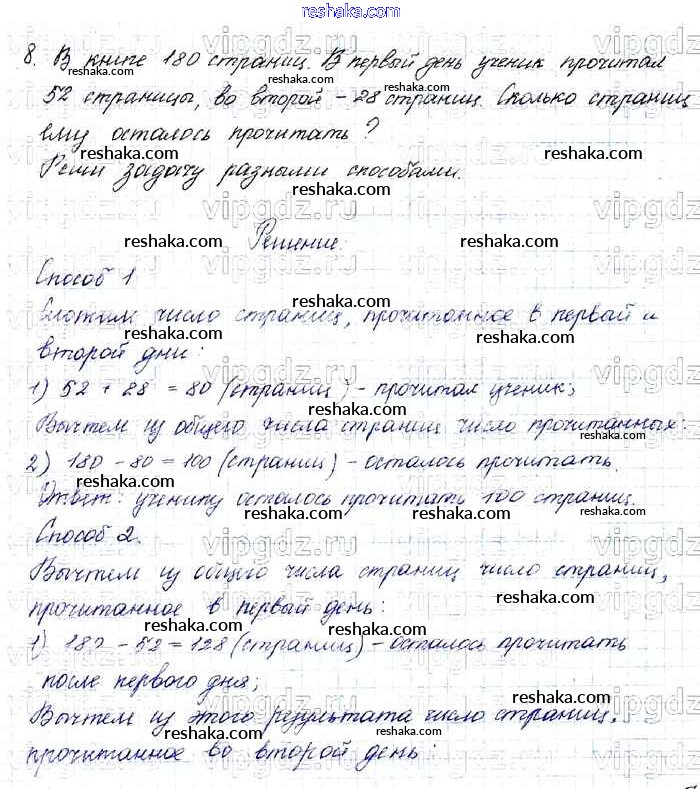 reshaka.com
8. В книге 180 страниц. В первый день ученик прочитал
52 страницы, во второй – 28 страниц. Сколько страниц
ему осталось прочитать?
Реши задачу разными способами.
Решение.
Способ 1
Сложим число страниц, прочитанное в первый и
второй дни:
1) 52 + 28 = 80 (страниц) – прочитал ученик;
Вычтем из общего числа страниц число прочитанных:
2) 180 – 80 = 100 (страниц) – осталось прочитать.
Ответ: ученику осталось прочитать 100 страниц.
Способ 2.
Вычтем из общего числа страниц число страниц,
прочитанное в первый день:
1) 180 – 52 = 128 (страниц) – осталось прочитать
после первого дня;
Вычтем из этого результата число страниц,
прочитанное во второй день: